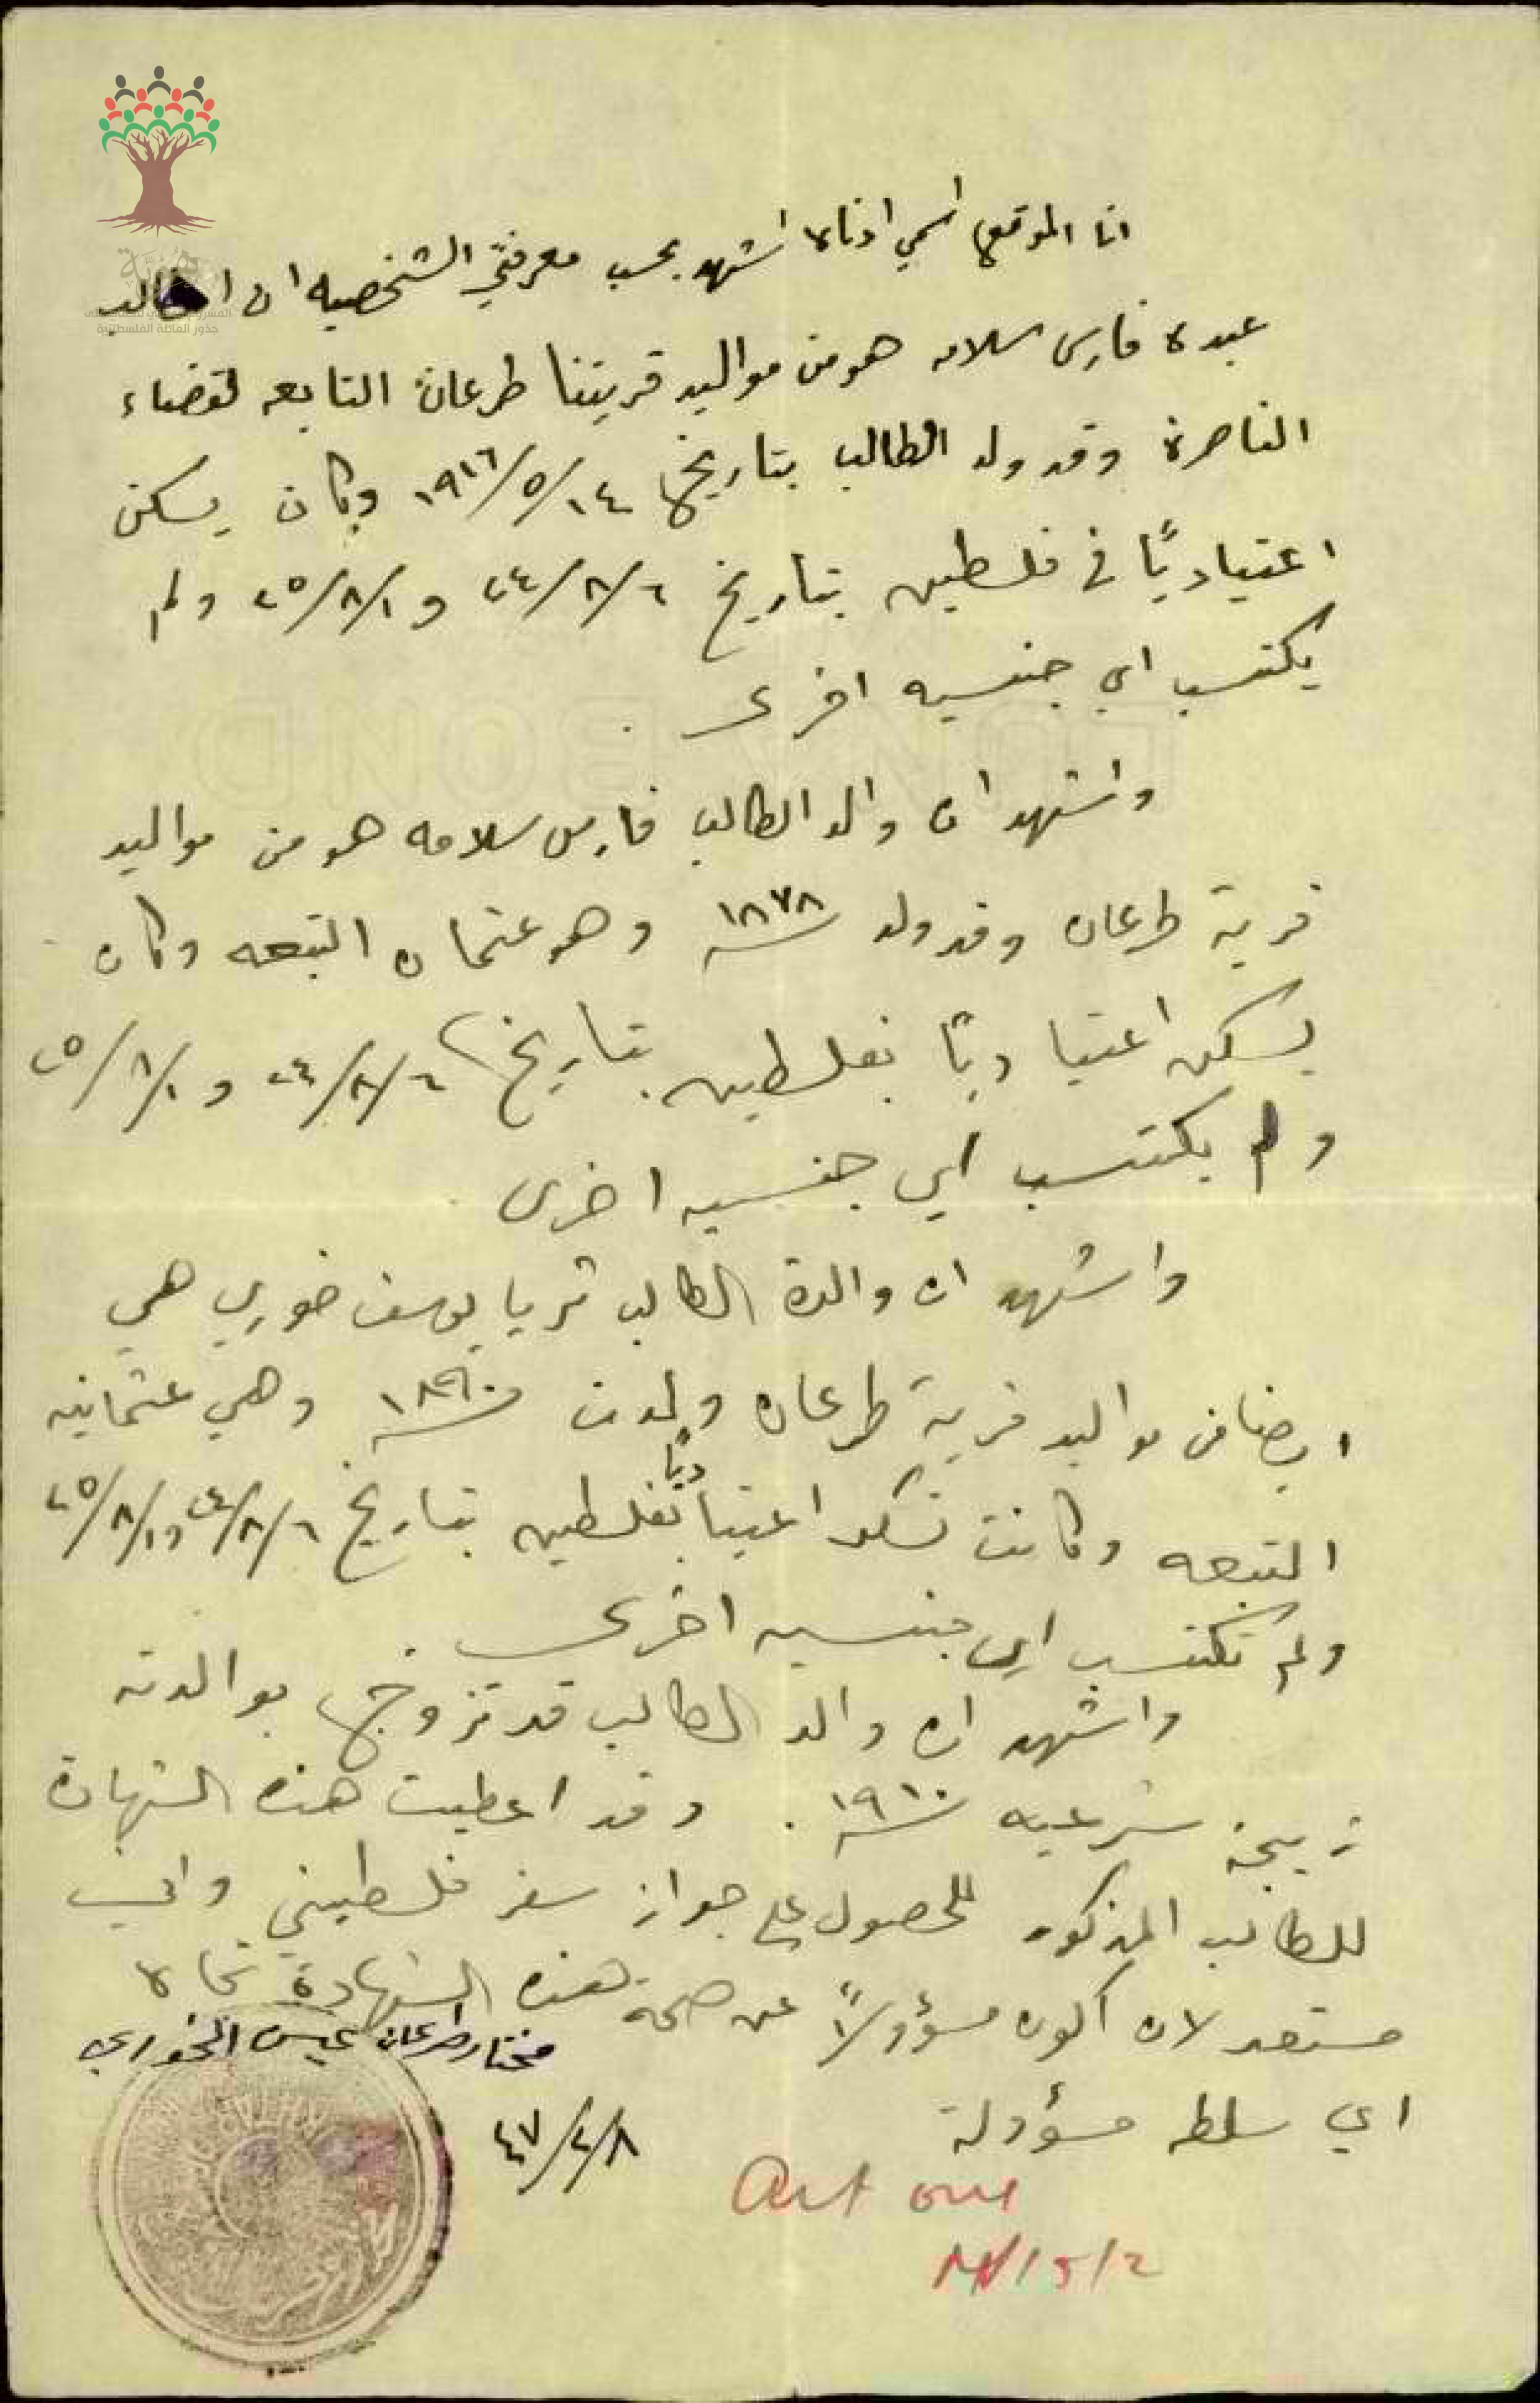 انا الموقع اسمي ادناه اشهد بحسب معرفتي الشخصيه ان الطالب
عبده فارس سلامه هو من مواليد قريتنا طرعان التابعه لقضاء
الناصرة وقد ولد الطالب بتاريخ ١٤/٥/١٩١٦ وكان يسكن
اعتياديًا في فلسطين بتاريخ ٦/٨/٢٤ و ١/٨/٢٥ ولم
يكتسب اي جنسيه اخرى .
واشهد ان والد الطالب فارس سلامه هو من مواليد
قرية طرعان وقد ولد سنة ١٨٧٨ وهو عثماني التبعه وكان
يسكن اعتياديًا بفلسطين بتاريخ ٦/٨/٢٤ و ١/٨/٢٥
ولم يكتسب اي جنسيه اخرى
واشهد ان والدة الطالب ثريا يوسف خوري هي
ايضا من مواليد قرية طرعان ولدت سنة ١٨٩٠ وهي عثمانيه
التبعه وكانت تسكن اعتياديًا بفلسطين بتاريخ ٦/٨/٢٤ و١/٨/٢٥
ولم تكتسب اي جنسيه اخرى
واشهد ان والد الطالب قد تزوج بوالدته
زيجة شرعيه سنة ١٩١٠ . وقد اعطيت هذه الشهادة
للطالب المذكور للحصول على جواز سفر فلسطيني واني
مستعد لان اكون مسؤولاً عن صحة هذه الشهادة تجاه
اي سلطه مسؤولة
مختار طرعان عيسى الخوري
٨/٢/٤٧
Art one
جذور العائلة الفلسطينية